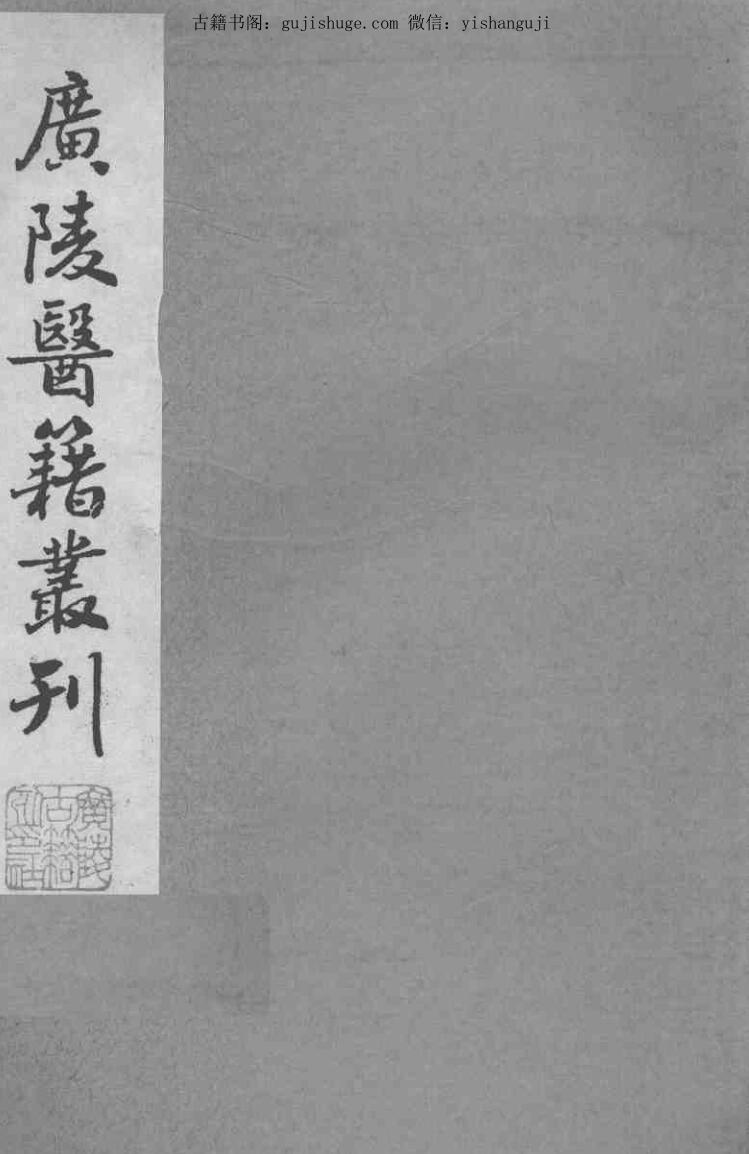 古籍书阁：gujishuge.com 微信：yishanguji
廣陵醫籍叢刊
廣陵
古籍